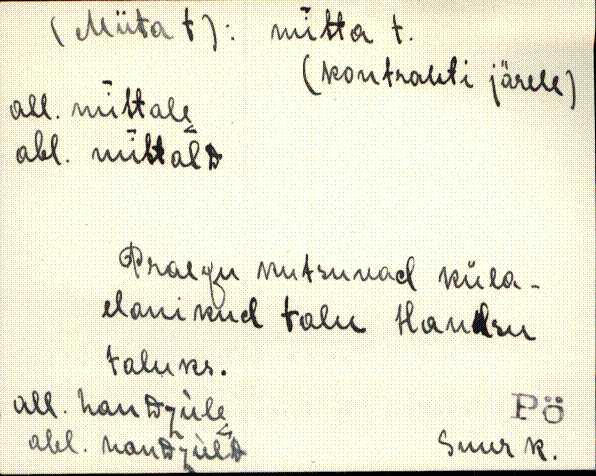 (Müta t): mītta t.
(kontrahti järele)
all. mīttale
abl. mīttalD
Praegu kutsuvad küla-
elanikud talu Handsu
taluks.
all. hanDzùle
abl. hanDzùlD
Pö
Suur k.